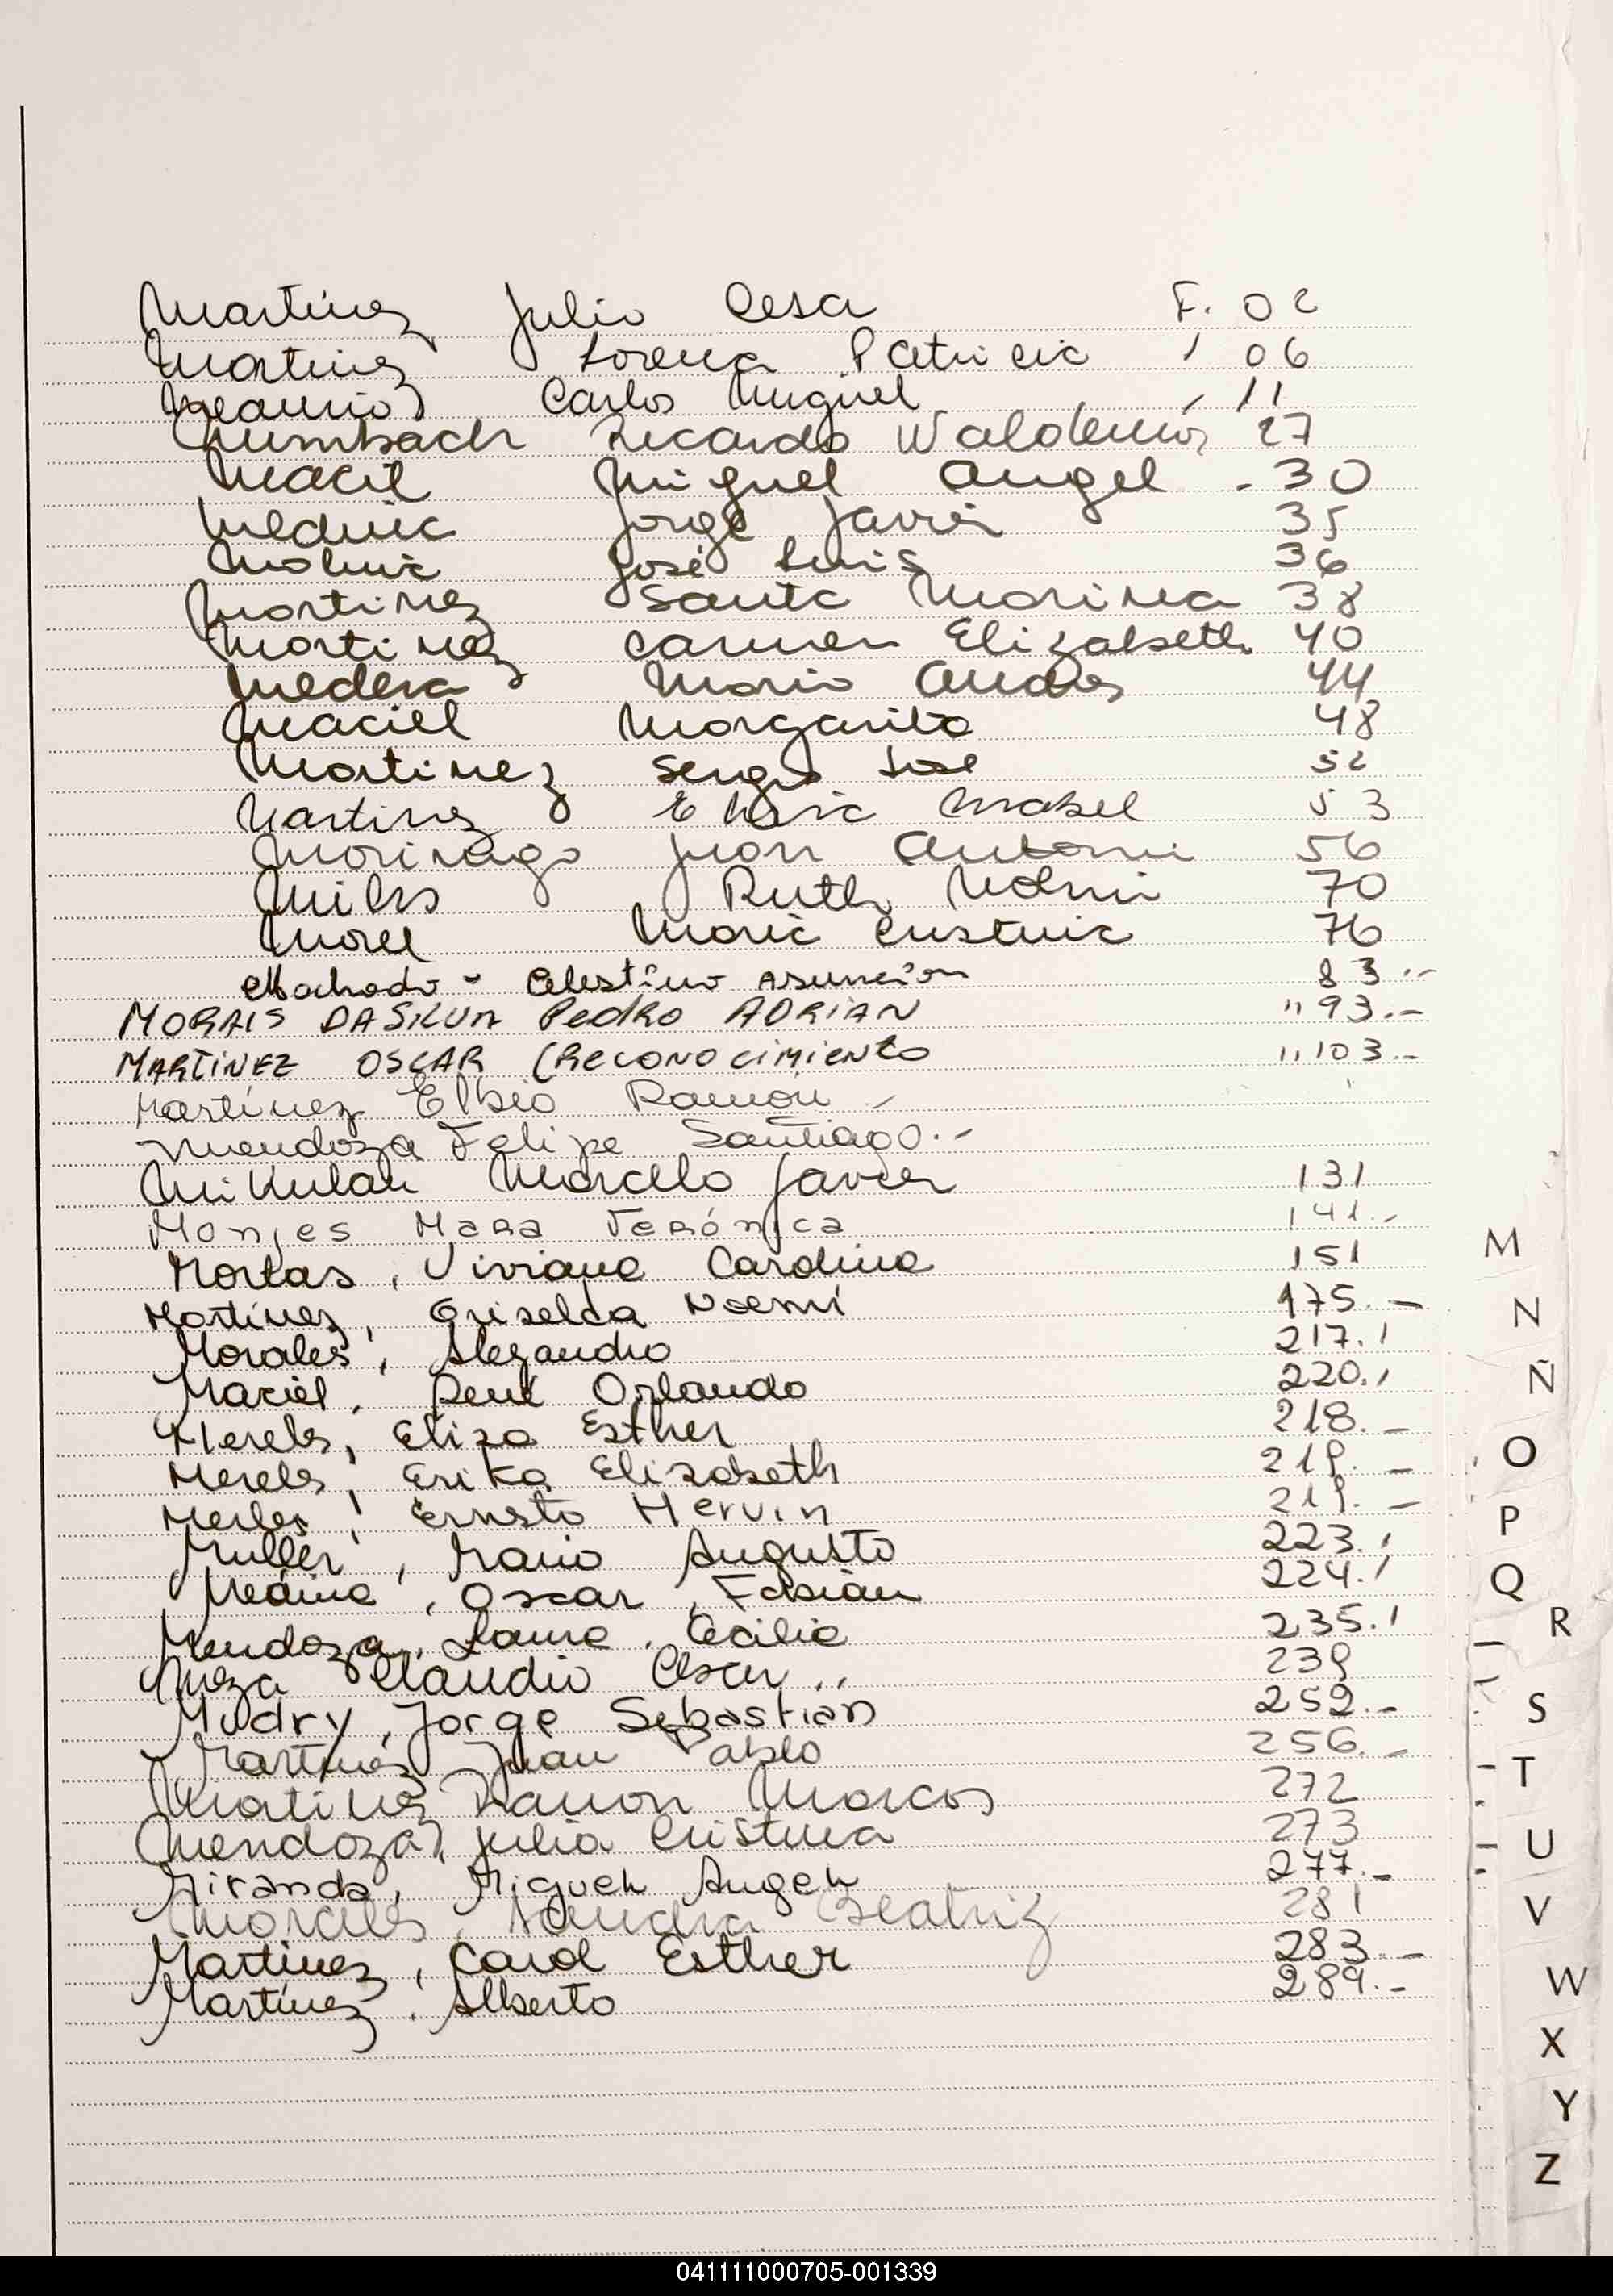 Martinez Julio Cesa F. 02
Martinez Lorena Patricia , 06
Carlos Miguel , 11
Mumbach Ricardo Waldemar 27
Maciel Miguel Angel - 30
Medina Jorge Javier 35
Molina José Luis 36
Martinez Santa Marina 38
Martinez Carmen Elizabeth 40
Medera Mario Andres 44
Maciel Margarita 48
Martinez Sergio Jose 52
Martinez Mabel 53
Morinago Juan Antonio 56
Milos Ruth Noemi 70
Morel Maria Cristina 76
Machado - Celestino Asuncion 83.--
MORAIS DASILVA Pedro ADRIAN " 93.-
MARTINEZ OSCAR (RECONOCIMIENTO " 103.-
Martínez Elbio Ramón -
Mendoza Felipe Santiago.-
Mikulan Marcelo Javier 131
Monjes Mara Verónica 141.-
Mortas, Viviana Carolina 151
Martínez, Griselda Noemí 175.-
Morales, Alejandro 217.,
Maciel, René Orlando 220.,
Mereles, Eliza Esther 218.-
Mereles, Erika Elizabeth 219.-
Merles, Ernesto Mervin 219.-
Muller, Mario Augusto 223.,
Medina, Oscar, Fabián 224.,
Mendoza, Laura, Cecilia 235.,
Meza Claudio Cesar,, 239
Mudry, Jorge Sebastián 252.-
Martínez Juan Pablo 256.-
Martinez Ramon Marcos 272
Mendoza, Julia Cristina 273
Miranda, Miguel Angel 277.-
Morales, Sandra Beatriz 281
Martinez, Carol Esther 283.-
Martínez, Alberto 289.-
M
N
Ñ
O
P
Q
R
S
T
U
V
W
X
Y
Z
041111000705-001339